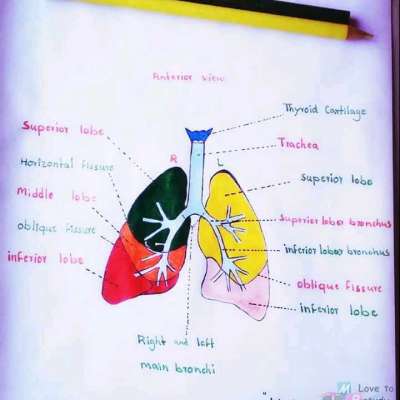 Anterior view
Thyroid Cartilage
Superior lobe
Trachea
R
L
Horizontal fissure
Superior lobe
Middle lobe
Superior lobar bronchus
oblique fissure
inferior lobar bronchus
inferior lobe
oblique fissure
inferior lobe
Right and left
main bronchi
M
Love to